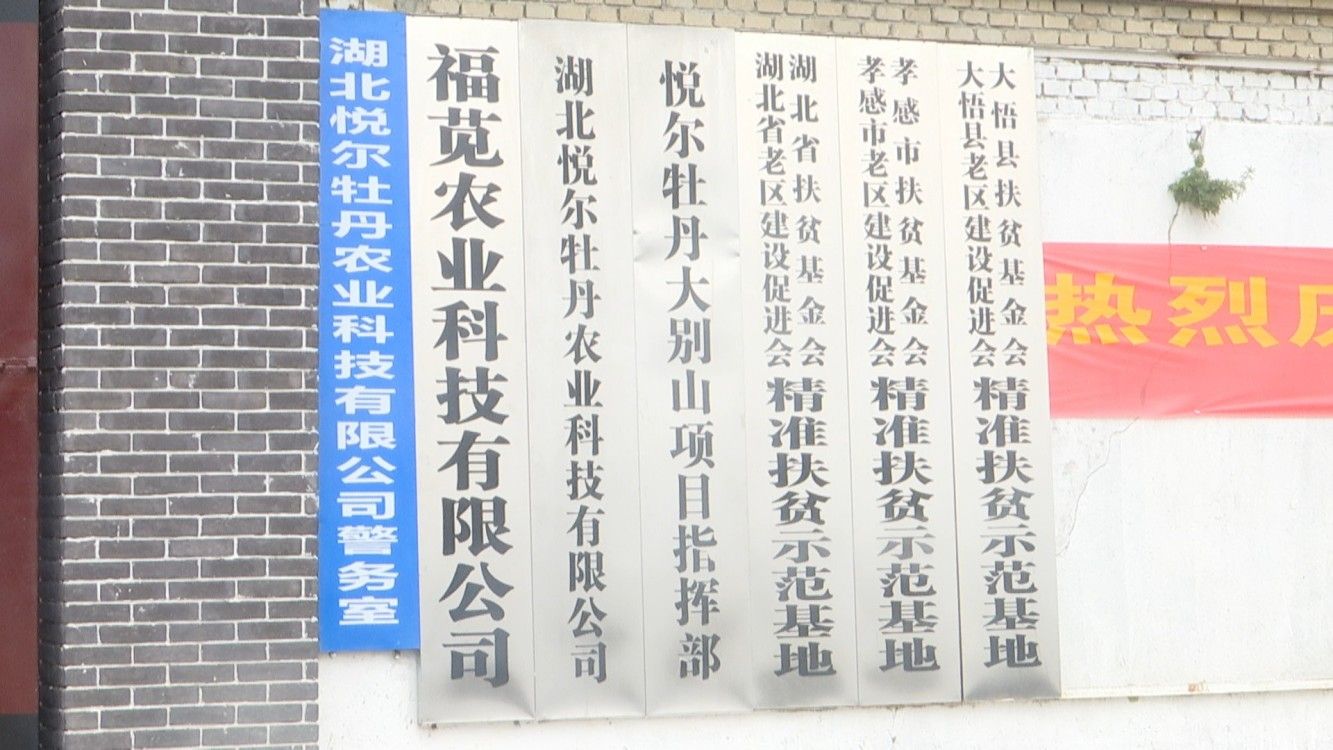 湖北悦尔牡丹农业科技有限公司警务室
福苋农业科技有限公司
湖北悦尔牡丹农业科技有限公司
悦尔牡丹大别山项目指挥部
湖北省扶贫基金会
湖北省老区建设促进会
精准扶贫示范基地
孝感市扶贫基金会
孝感市老区建设促进会
精准扶贫示范基地
大悟县扶贫基金会
大悟县老区建设促进会
精准扶贫示范基地
热烈庆